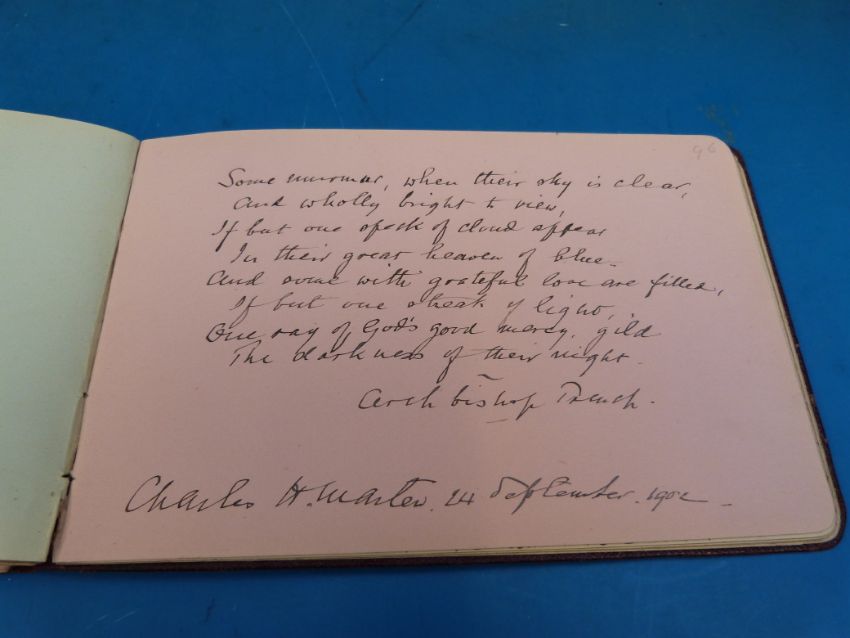 96
Some murmur, when their sky is clear,
And wholly bright to view,
If but one speck of cloud appear
In their great heaven of blue -
And some with grateful love are filled,
If but one streak of light,
One ray of God's good mercy, gild
The darkness of their night.
Archbishop Trench.
Charles H. 24 September. 1902